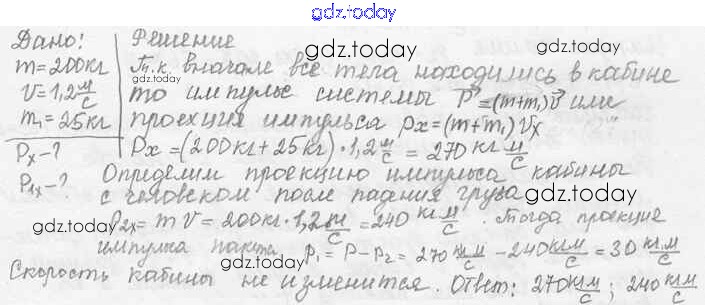 gdz.today
Дано: Решение
gdz.today gdz.today
m=200кг Т.к. вначале все тела находились в кабине
gdz.today
V=1,2 м/с то импульс системы P⃗=(m+m₁)V⃗ или
m₁=25кг проекция импульса px=(m+m₁)Vx
Px-? Px=(200кг+25кг)·1,2 м/с=270 кг м/с
P₁x-? Определим проекцию импульса кабины
gdz.today
с человеком после падения груза
gdz.today
gdz.today
P₂x=mV=200кг·1,2 м/с=240 кг м/с. Тогда проекция
импулка пакета P₁=P-P₂=270 кг м/с-240 кг м/с=30 кг·м/с
gdz.today
Скорость кабины не изменится. Ответ: 270 кг м/с; 240 кг м/с
gdz.today